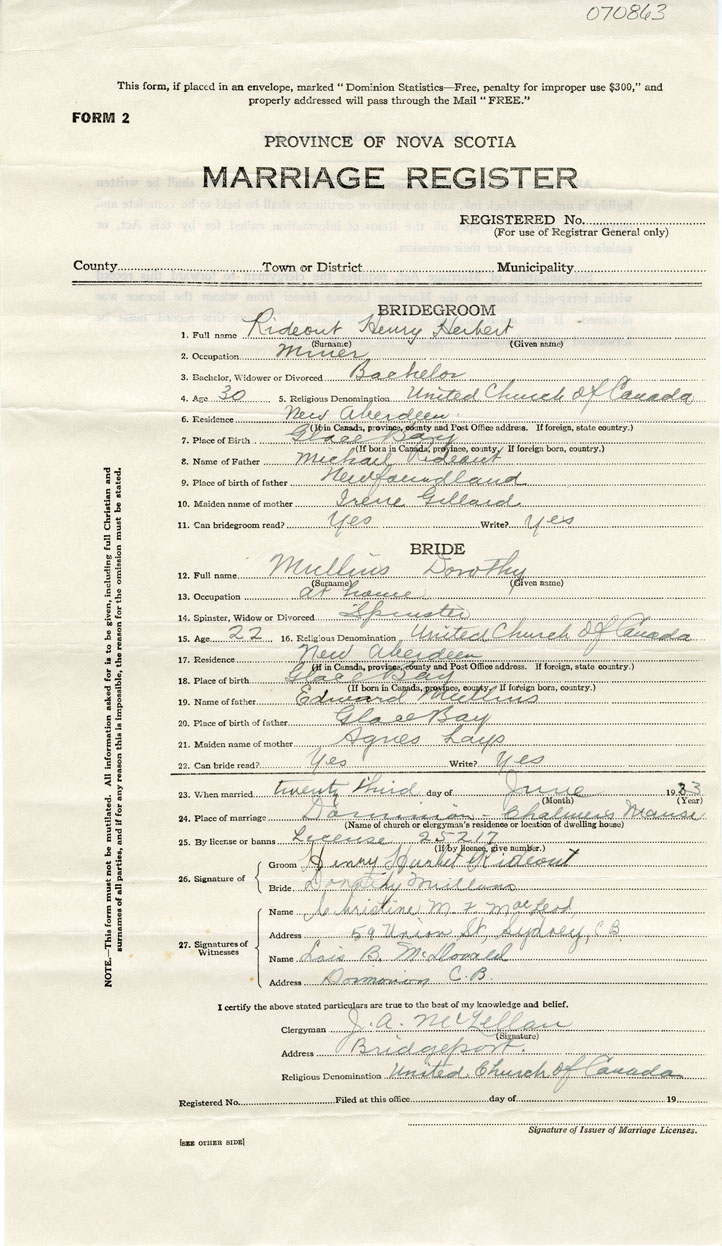 070863
This form, if placed in an envelope, marked "Dominion Statistics—Free, penalty for improper use $300," and
properly addressed will pass through the Mail "FREE."
FORM 2
PROVINCE OF NOVA SCOTIA
MARRIAGE REGISTER
REGISTERED No.
(For use of Registrar General only)
County Town or District Municipality
BRIDEGROOM
1. Full name Rideout Henry Herbert
(Surname) (Given name)
2. Occupation Miner
3. Bachelor, Widower or Divorced Bachelor
4. Age 30 5. Religious Denomination United Church of Canada
6. Residence New Aberdeen
(If in Canada, province, county and Post Office address. If foreign, state country.)
7. Place of Birth Glace Bay
(If born in Canada, province, county. If foreign born, country.)
8. Name of Father Michael Rideout
9. Place of birth of father Newfoundland
10. Maiden name of mother Irene Gillard
11. Can bridegroom read? Yes Write? Yes
BRIDE
12. Full name Mullins Dorothy
(Surname) (Given name)
13. Occupation at home
14. Spinster, Widow or Divorced Spinster
15. Age 22 16. Religious Denomination United Church of Canada
17. Residence New Aberdeen
(If in Canada, province, county and Post Office address. If foreign, state country.)
18. Place of birth Glace Bay
(If born in Canada, province, county. If foreign born, country.)
19. Name of father Edward Mullins
20. Place of birth of father Glace Bay
21. Maiden name of mother Agnes Lays
22. Can bride read? Yes Write? Yes
23. When married twenty third day of June 1933
(Month) (Year)
24. Place of marriage Dominion - Chalmers Manse
(Name of church or clergyman's residence or location of dwelling house)
25. By license or banns License 25217
(If by licence, give number.)
26. Signature of
Groom Henry Rideout
Bride Dorothy Mullins
27. Signatures of
Witnesses
Name Christine M. MacLeod
Address 59 Union St, Sydney, C.B.
Name Lois B. McDonald
Address Dominion C.B.
I certify the above stated particulars are true to the best of my knowledge and belief.
Clergyman J. A. McLellan
(Signature)
Address Bridgeport.
Religious Denomination United Church of Canada
Registered No. Filed at this office day of 19
Signature of Issuer of Marriage Licenses.
[SEE OTHER SIDE]
NOTE.—This form must not be mutilated. All information asked for is to be given, including full Christian and
surnames of all parties, and if for any reason this is impossible, the reason for the omission must be stated.